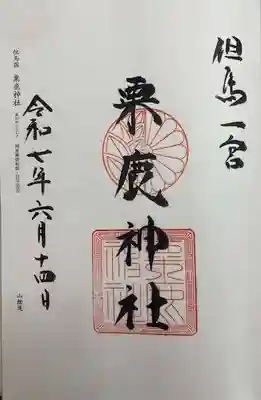 但馬一宮
粟鹿神社
令和七年六月十四日
但馬國 粟鹿神社